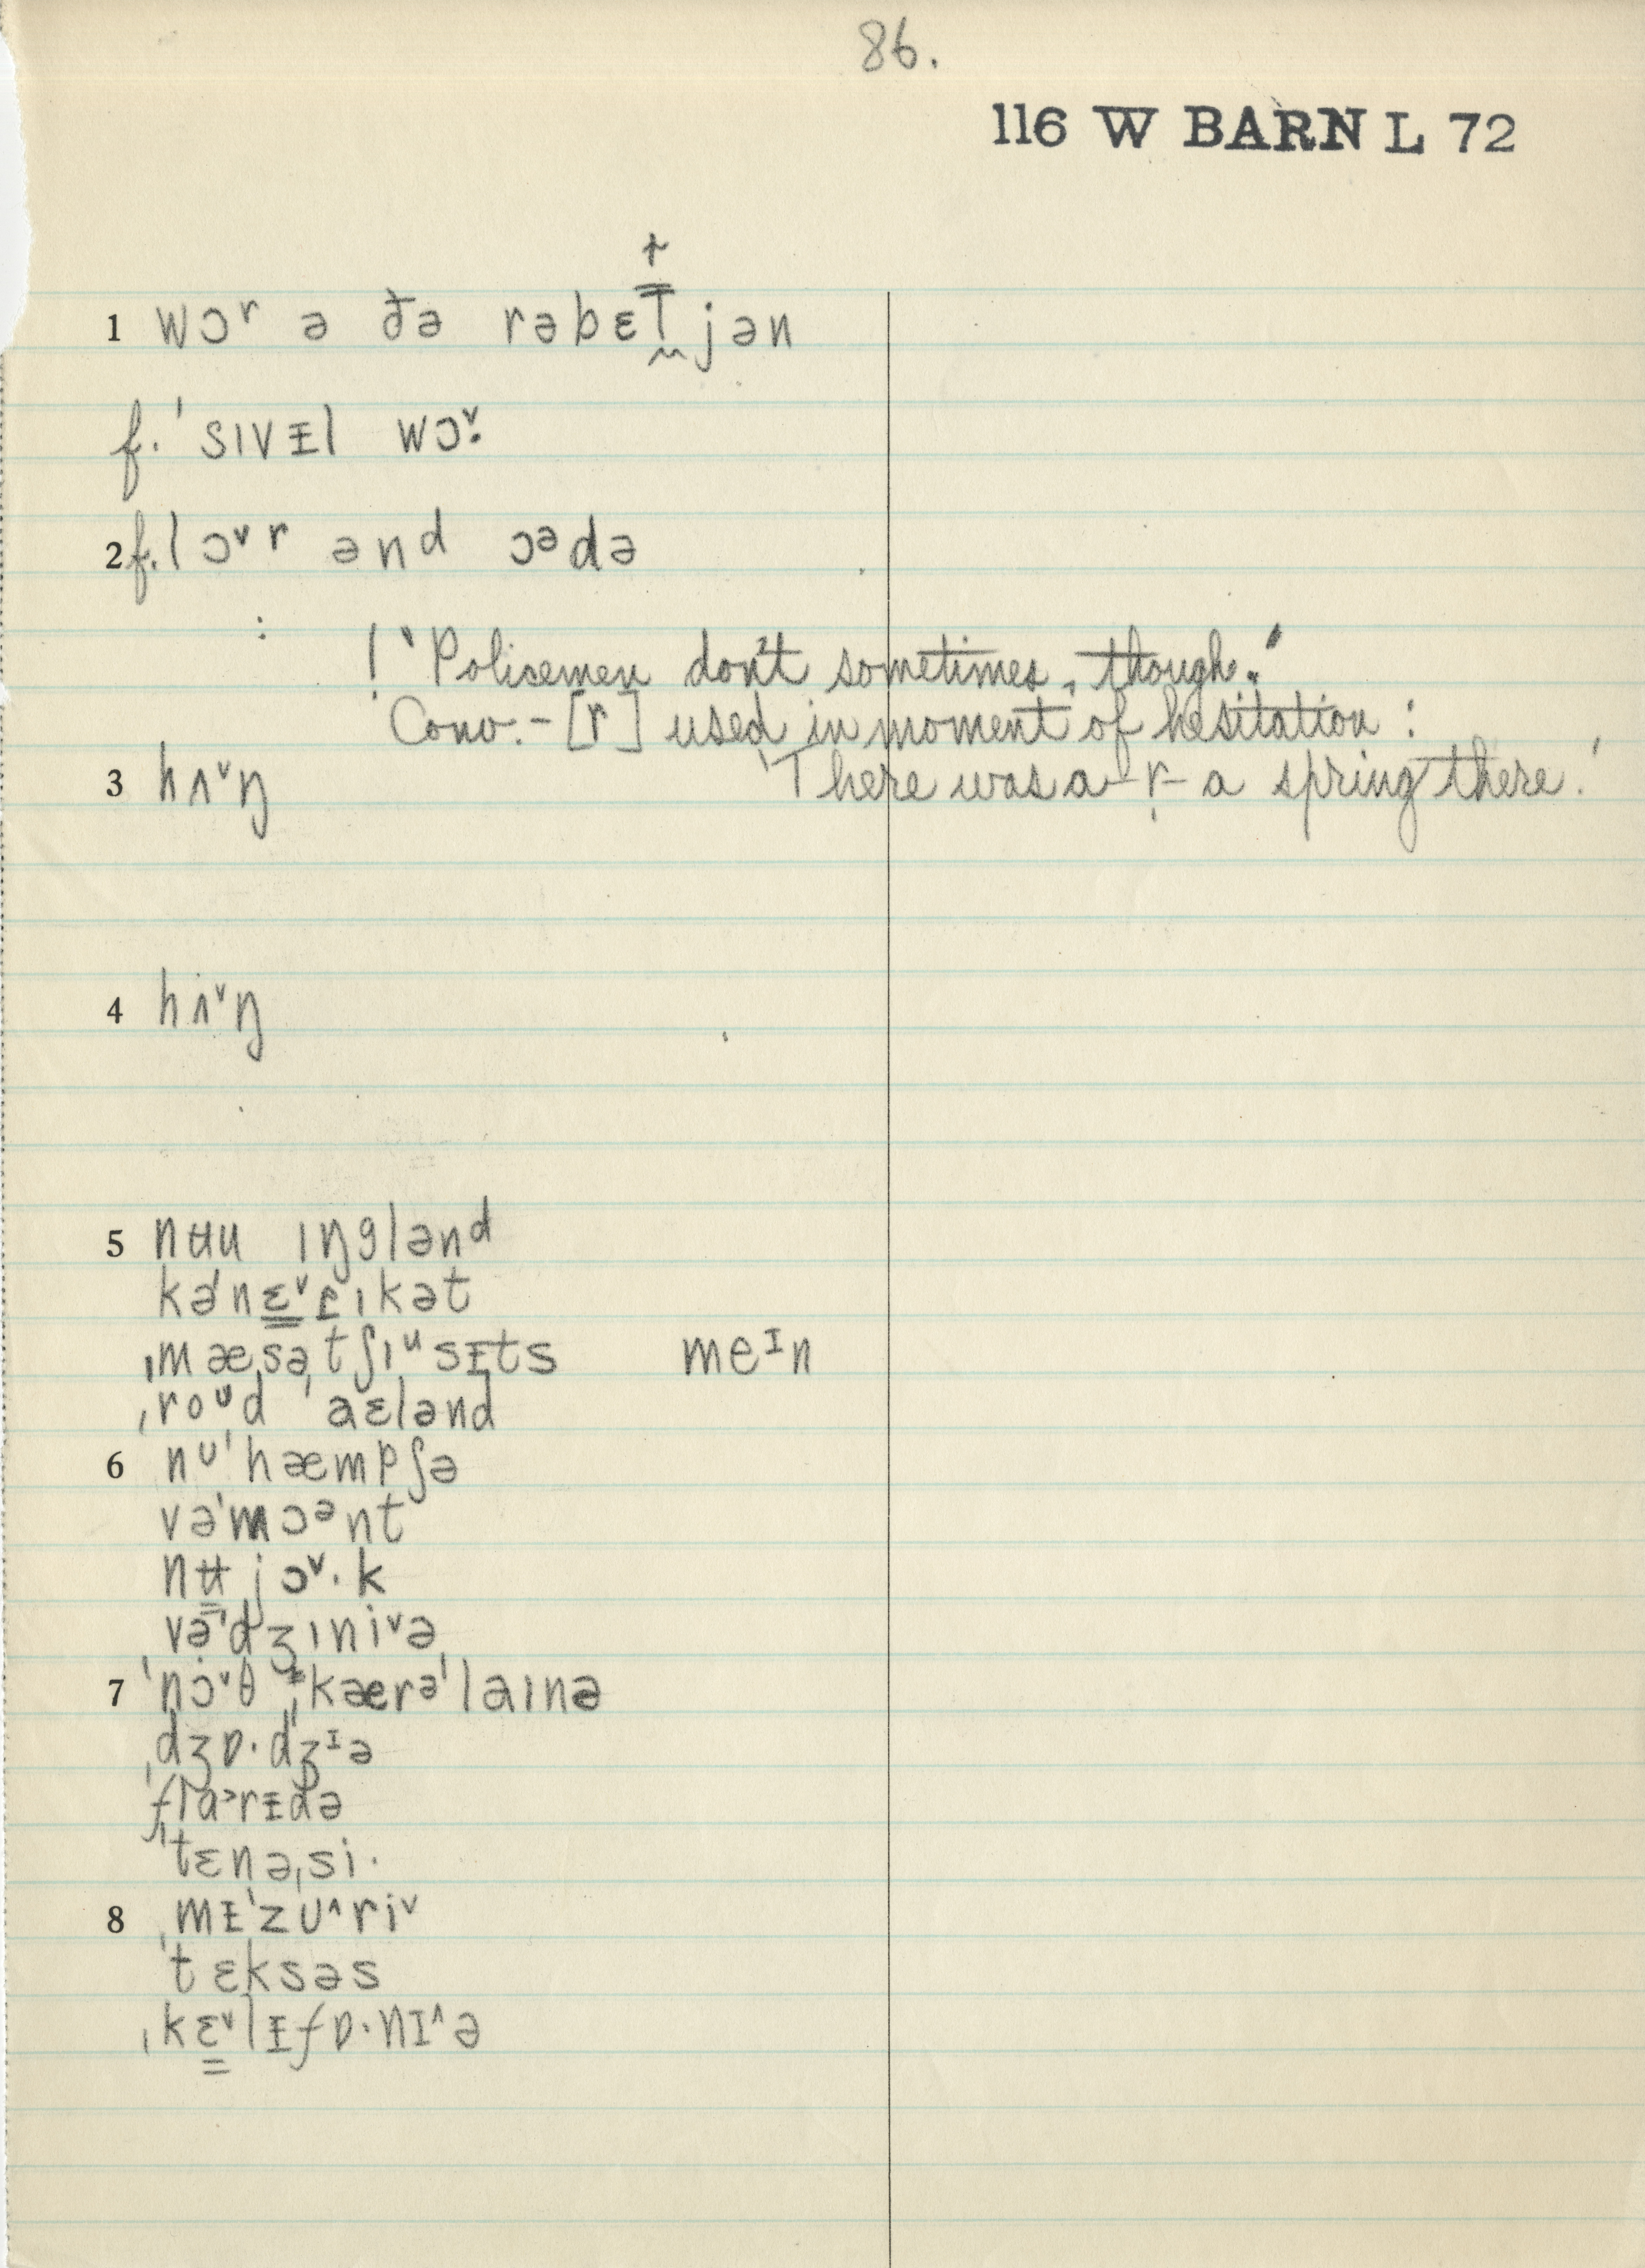 86.
116 W BARN L 72
1 wɔʳ ə ðə rəbɛl̴jən
f. ˈsɪvᵻl wɔ˅·
2 f. lɔ˅r ənᵈ ɔᵊdə
: ! "Policemen don't sometimes, though."
Conv. - [r] used in moment of hesitation :
3 hʌ˅ŋ 'There was a - r̩ - a spring there.'
4 hʌ˅ŋ
5 nʉu ɪŋglənᵈ
kəˈnɛ˅ɾɪkət
ˌmæsəˌtʃɪᵘsᵻts meᴵn
ˌroᶸd ˈaɛlənd
6 nᶸˈhæmpʃə
vəˈmɔᵊnt
nʉ jɔ˅·k
vəˈdʒɪni˅ə
7 ˈnɔ˅θ ˌkærəˈlaɪnə
ˈdʒɒ·dʒᴵə
ˈflɑ˃rᵻdə
ˈtɛnəˌsi·
8 ˌmᵻˈzʊ˄ri˅
ˈtɛksəs
ˌkɛ˅lᵻfɒ·nɪ˄ə